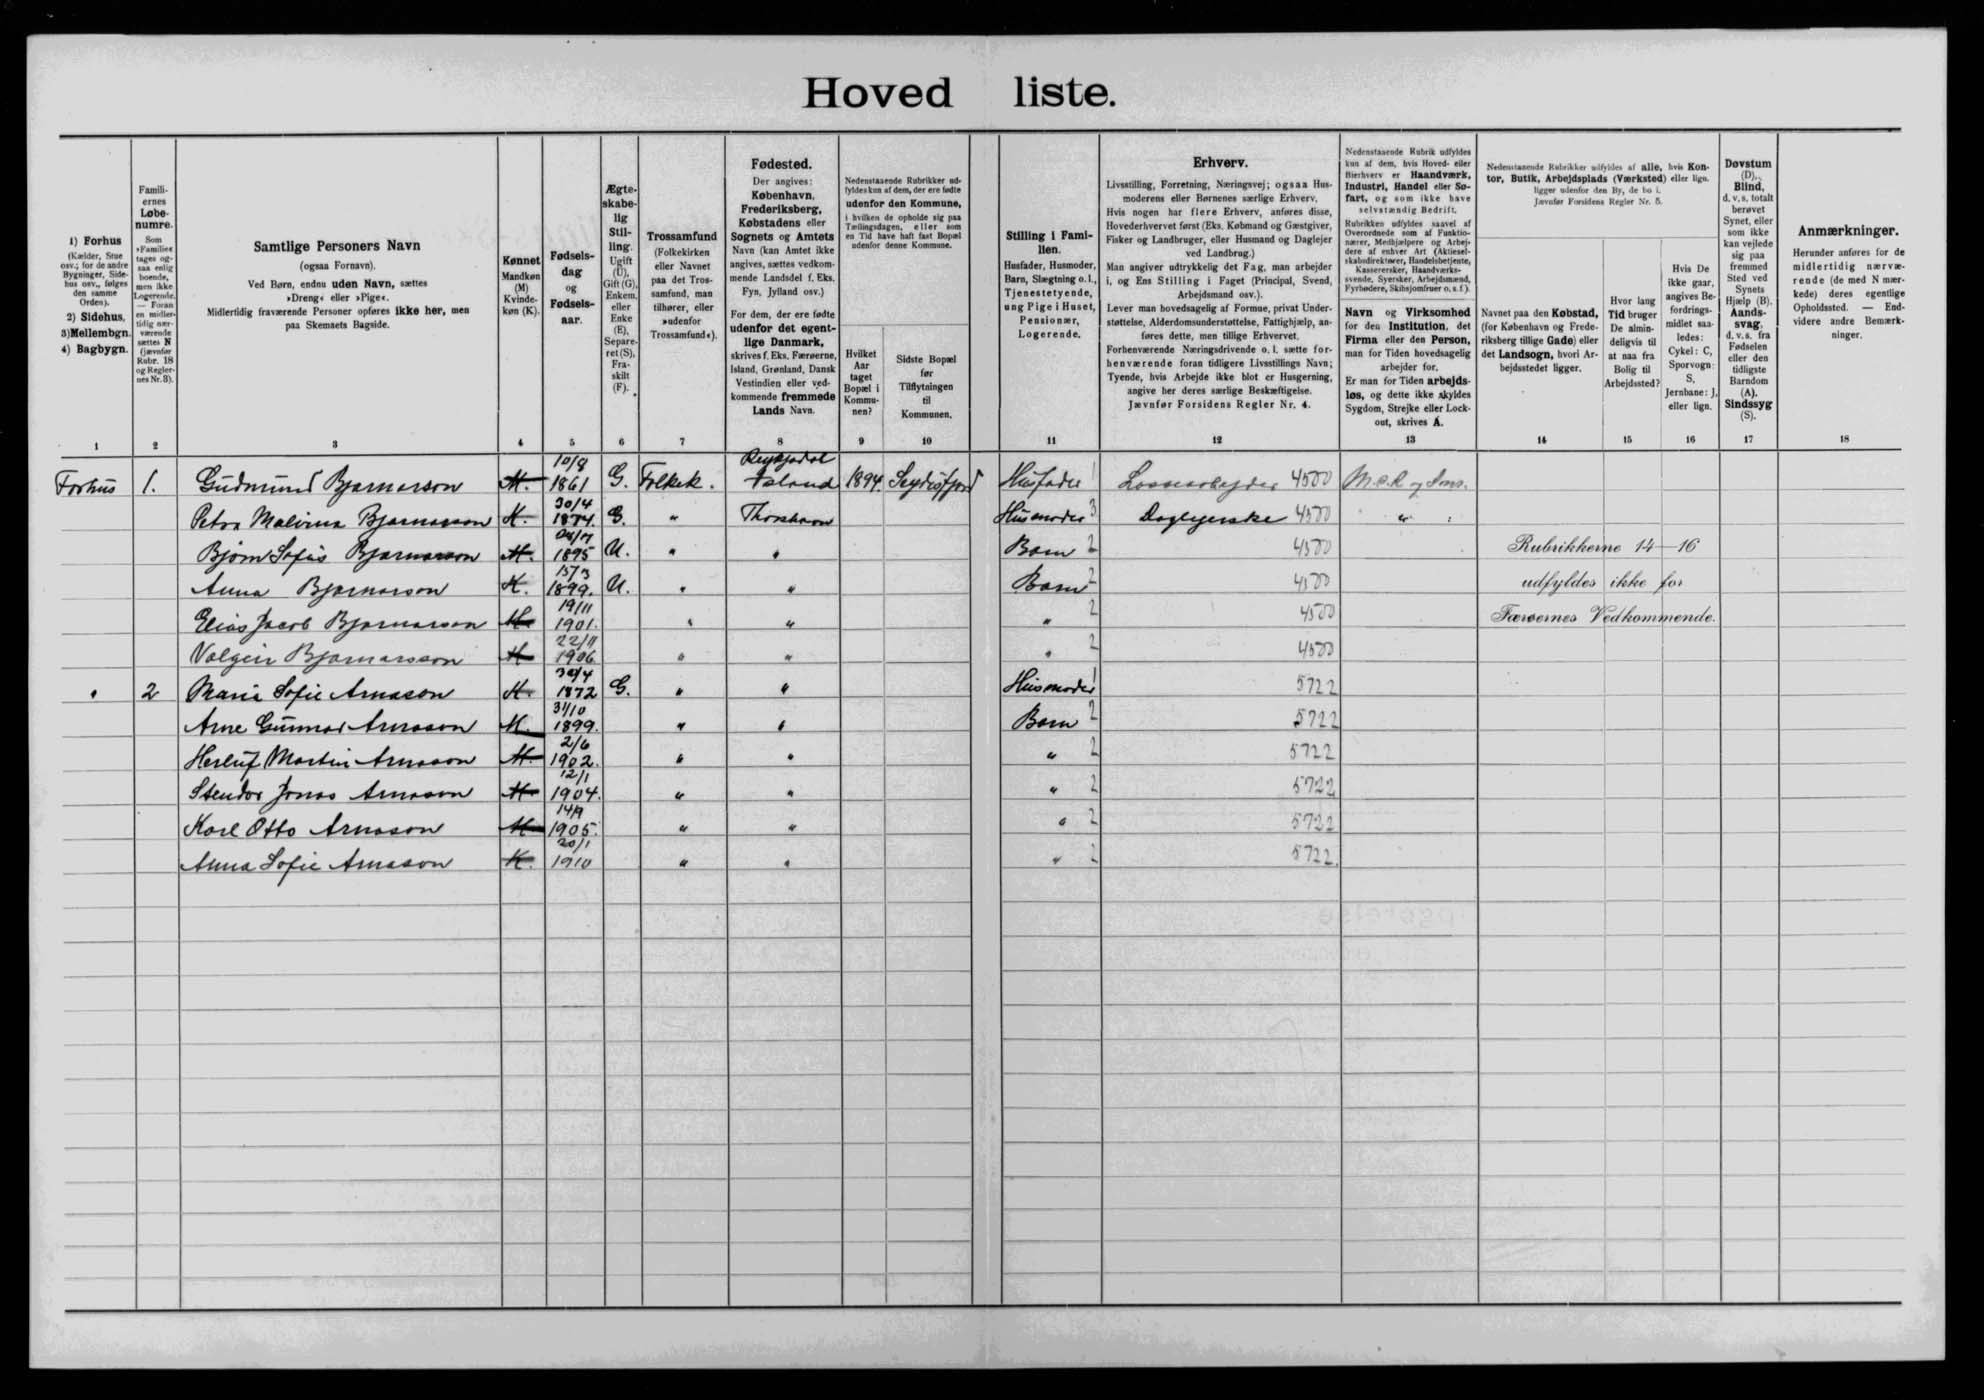 Hovedliste.
1) Forhus
(Kælder, Stue osv.; for de andre Bygninger, Sidehus osv., følges den samme Orden).
2) Sidehus,
3) Mellembgn.
4) Bagbygn.
Familiernes Løbenumre.
Som »Familie« tages ogsaa enlig boende, men ikke Logerende. — Foran en midlertidig nærværende sættes N (jævnfør Rubr. 18 og Reglernes Nr. 3).
Samtlige Personers Navn
(ogsaa Fornavn).
Ved Børn, endnu uden Navn, sættes »Dreng« eller »Pige«.
Midlertidig fraværende Personer opføres ikke her, men paa Skemaets Bagside.
Kønnet
Mandkøn (M) Kvindekøn (K).
Fødselsdag og Fødselsaar.
Ægteskabelig Stilling.
Ugift (U), Gift (G), Enkem. eller Enke (E), Separeret (S), Fraskilt (F).
Trossamfund
(Folkekirken eller Navnet paa det Trossamfund, man tilhører, eller »udenfor Trossamfund«).
Fødested.
Der angives: København, Frederiksberg, Købstadens eller Sognets og Amtets Navn (kan Amtet ikke angives, sættes vedkommende Landsdel f. Eks. Fyn, Jylland osv.)
For dem, der ere fødte udenfor det egentlige Danmark, skrives f. Eks. Færøerne, Island, Grønland, Dansk Vestindien eller vedkommende fremmede Lands Navn.
Nedenstaaende Rubrikker udfyldes kun af dem, der ere fødte udenfor den Kommune, i hvilken de opholde sig paa Tællingsdagen, eller som en Tid have haft fast Bopæl udenfor denne Kommune.
Hvilket Aar taget Bopæl i Kommunen?
Sidste Bopæl før Tilflytningen til Kommunen.
Stilling i Familien.
Husfader, Husmoder, Barn, Slægtning o. l., Tjenestetyende, ung Pige i Huset, Pensionær, Logerende.
Erhverv.
Livsstilling, Forretning, Næringsvej; ogsaa Husmoderens eller Børnenes særlige Erhverv.
Hvis nogen har flere Erhverv, anføres disse, Hovederhvervet først (Eks. Købmand og Gæstgiver, Fisker og Landbruger, eller Husmand og Daglejer ved Landbrug.)
Man angiver udtrykkelig det Fag, man arbejder i, og Ens Stilling i Faget (Principal, Svend, Arbejdsmand osv.).
Lever man hovedsagelig af Formue, privat Understøttelse, Alderdomsunderstøttelse, Fattighjælp, anføres dette, men tillige Erhvervet.
Forhenværende Næringsdrivende o. l. sætte forhenværende foran tidligere Livsstillings Navn; Tyende, hvis Arbejde ikke blot er Husgerning, angive her deres særlige Beskæftigelse.
Jævnfør Forsidens Regler Nr. 4.
Nedenstaaende Rubrik udfyldes kun af dem, hvis Hoved- eller Bierhverv er Haandværk, Industri, Handel eller Søfart, og som ikke have selvstændig Bedrift.
Rubrikken udfyldes saavel af Overordnede som af Funktionærer, Medhjælpere og Arbejdere af enhver Art (Aktieselskabsdirektører, Handelsbetjente, Kasserersker, Haandværkssvende, Syersker, Arbejdsmænd, Fyrbødere, Skibsjomfruer o. s. f.).
Navn og Virksomhed for den Institution, det Firma eller den Person, man for Tiden hovedsagelig arbejder for.
Er man for Tiden arbejdsløs, og dette ikke skyldes Sygdom, Strejke eller Lockout, skrives A.
Nedenstaaende Rubrikker udfyldes af alle, hvis Kontor, Butik, Arbejdsplads (Værksted) eller lign. ligger udenfor den By, de bo i.
Jævnfør Forsidens Regler Nr. 5.
Navnet paa den Købstad, (for København og Frederiksberg tillige Gade) eller det Landsogn, hvori Arbejdsstedet ligger.
Hvor lang Tid bruger De almindeligvis til at naa fra Bolig til Arbejdssted?
Hvis De ikke gaar, angives Befordringsmidlet saaledes: Cykel: C, Sporvogn: S, Jernbane: J, eller lign.
Døvstum (D), Blind, d. v. s. totalt berøvet Synet, eller som ikke kan vejlede sig paa fremmed Sted ved Synets Hjælp (B). Aandssvag, d. v. s. fra Fødselen eller den tidligste Barndom (A). Sindssyg (S).
Anmærkninger.
Herunder anføres for de midlertidig nærværende (de med N mærkede) deres egentlige Opholdssted. — Endvidere andre Bemærkninger.
1 2 3 4 5 6 7 8 9 10 11 12 13 14 15 16 17 18
Forhus 1. Gudmund Bjarnarson M. 10/8 1861 G. Folkek. Reykjadal Island 1894. Seydisfjord Husfader 1 Lossearbejder 4500
Petra Malvina Bjarnarson K. 30/4 1874. G. " Thorshavn Husmoder 3 Daglejerske 4500 "
Bjørn Sofus Bjarnarson M. 1895 U. " " Barn 2 4500 Rubrikkerne 14—16
Anna Bjarnarson K. 15/3 1899. U. " " Barn 2 4500 udfyldes ikke for
Elias Jacob Bjarnarson M. 19/11 1901. " " " 2 4500 Færøernes Vedkommende.
Valgeir Bjarnarson M 22/11 1906 " " " 2 4500
" 2 Maria Sofie Arnason K. 30/4 1872 G. " " Husmoder 1 5722
Arne Gunnar Arnason M. 31/10 1899. " " Barn 2 5722
Herluf Martin Arnason M. 2/6 1902. " " " 2 5722
Steindor Jonas Arnason M. 12/1 1904. " " " 2 5722
Karl Otto Arnason M 14/9 1905. " " " 2 5722
Anna Sofie Arnason K. 20/1 1910 " " " 2 5722.